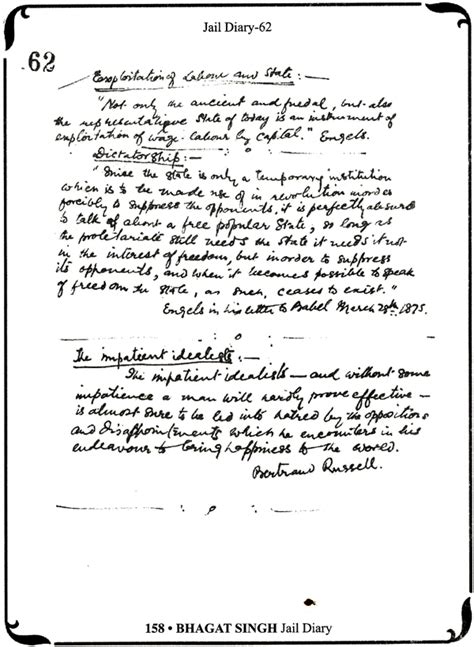 Jail Diary-62
62
Exploitation of Labour and State :—
"Not only the ancient and fuedal, but also
the representative State of today is an instrument of
exploitation of wage-labour by capital." Engels.
Dictatorship :—
"Since the state is only a temporary institution
which is to be made use of in revolution in order
forcibly to suppress the opponents, it is perfectly absurd
to talk of about a free popular State, so long as
the proletariate still needs the state it needs it not
in the interest of freedom, but in order to suppress
its opponents, and when it becomes possible to speak
of freedom the state, as such, ceases to exist."
Engels in his letter to Babel March 28th, 1875.
The impatient idealists :—
The impatient idealists — and without some
impatience a man will hardly prove effective —
is almost sure to be led into hatred by the oppositions
and disappointments which he encounters in his
endeavour to bring happiness to the world.
Bertrand Russell.
158 • BHAGAT SINGH Jail Diary